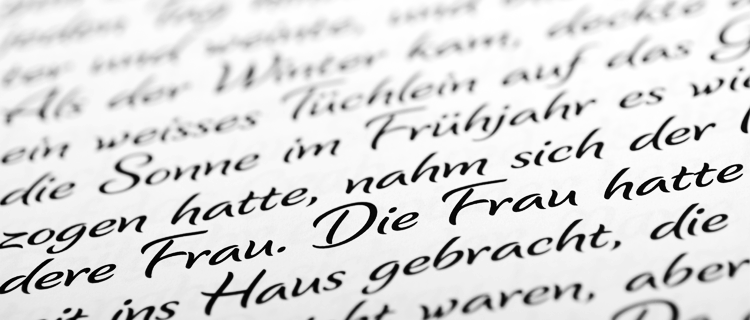 jeden Tag
ter und weinte, und
Als der Winter kam, deckte
ein weisses Tüchlein auf das
die Sonne im Frühjahr es
zogen hatte, nahm sich der
dere Frau. Die Frau hatte
ins Haus gebracht, die
waren, aber